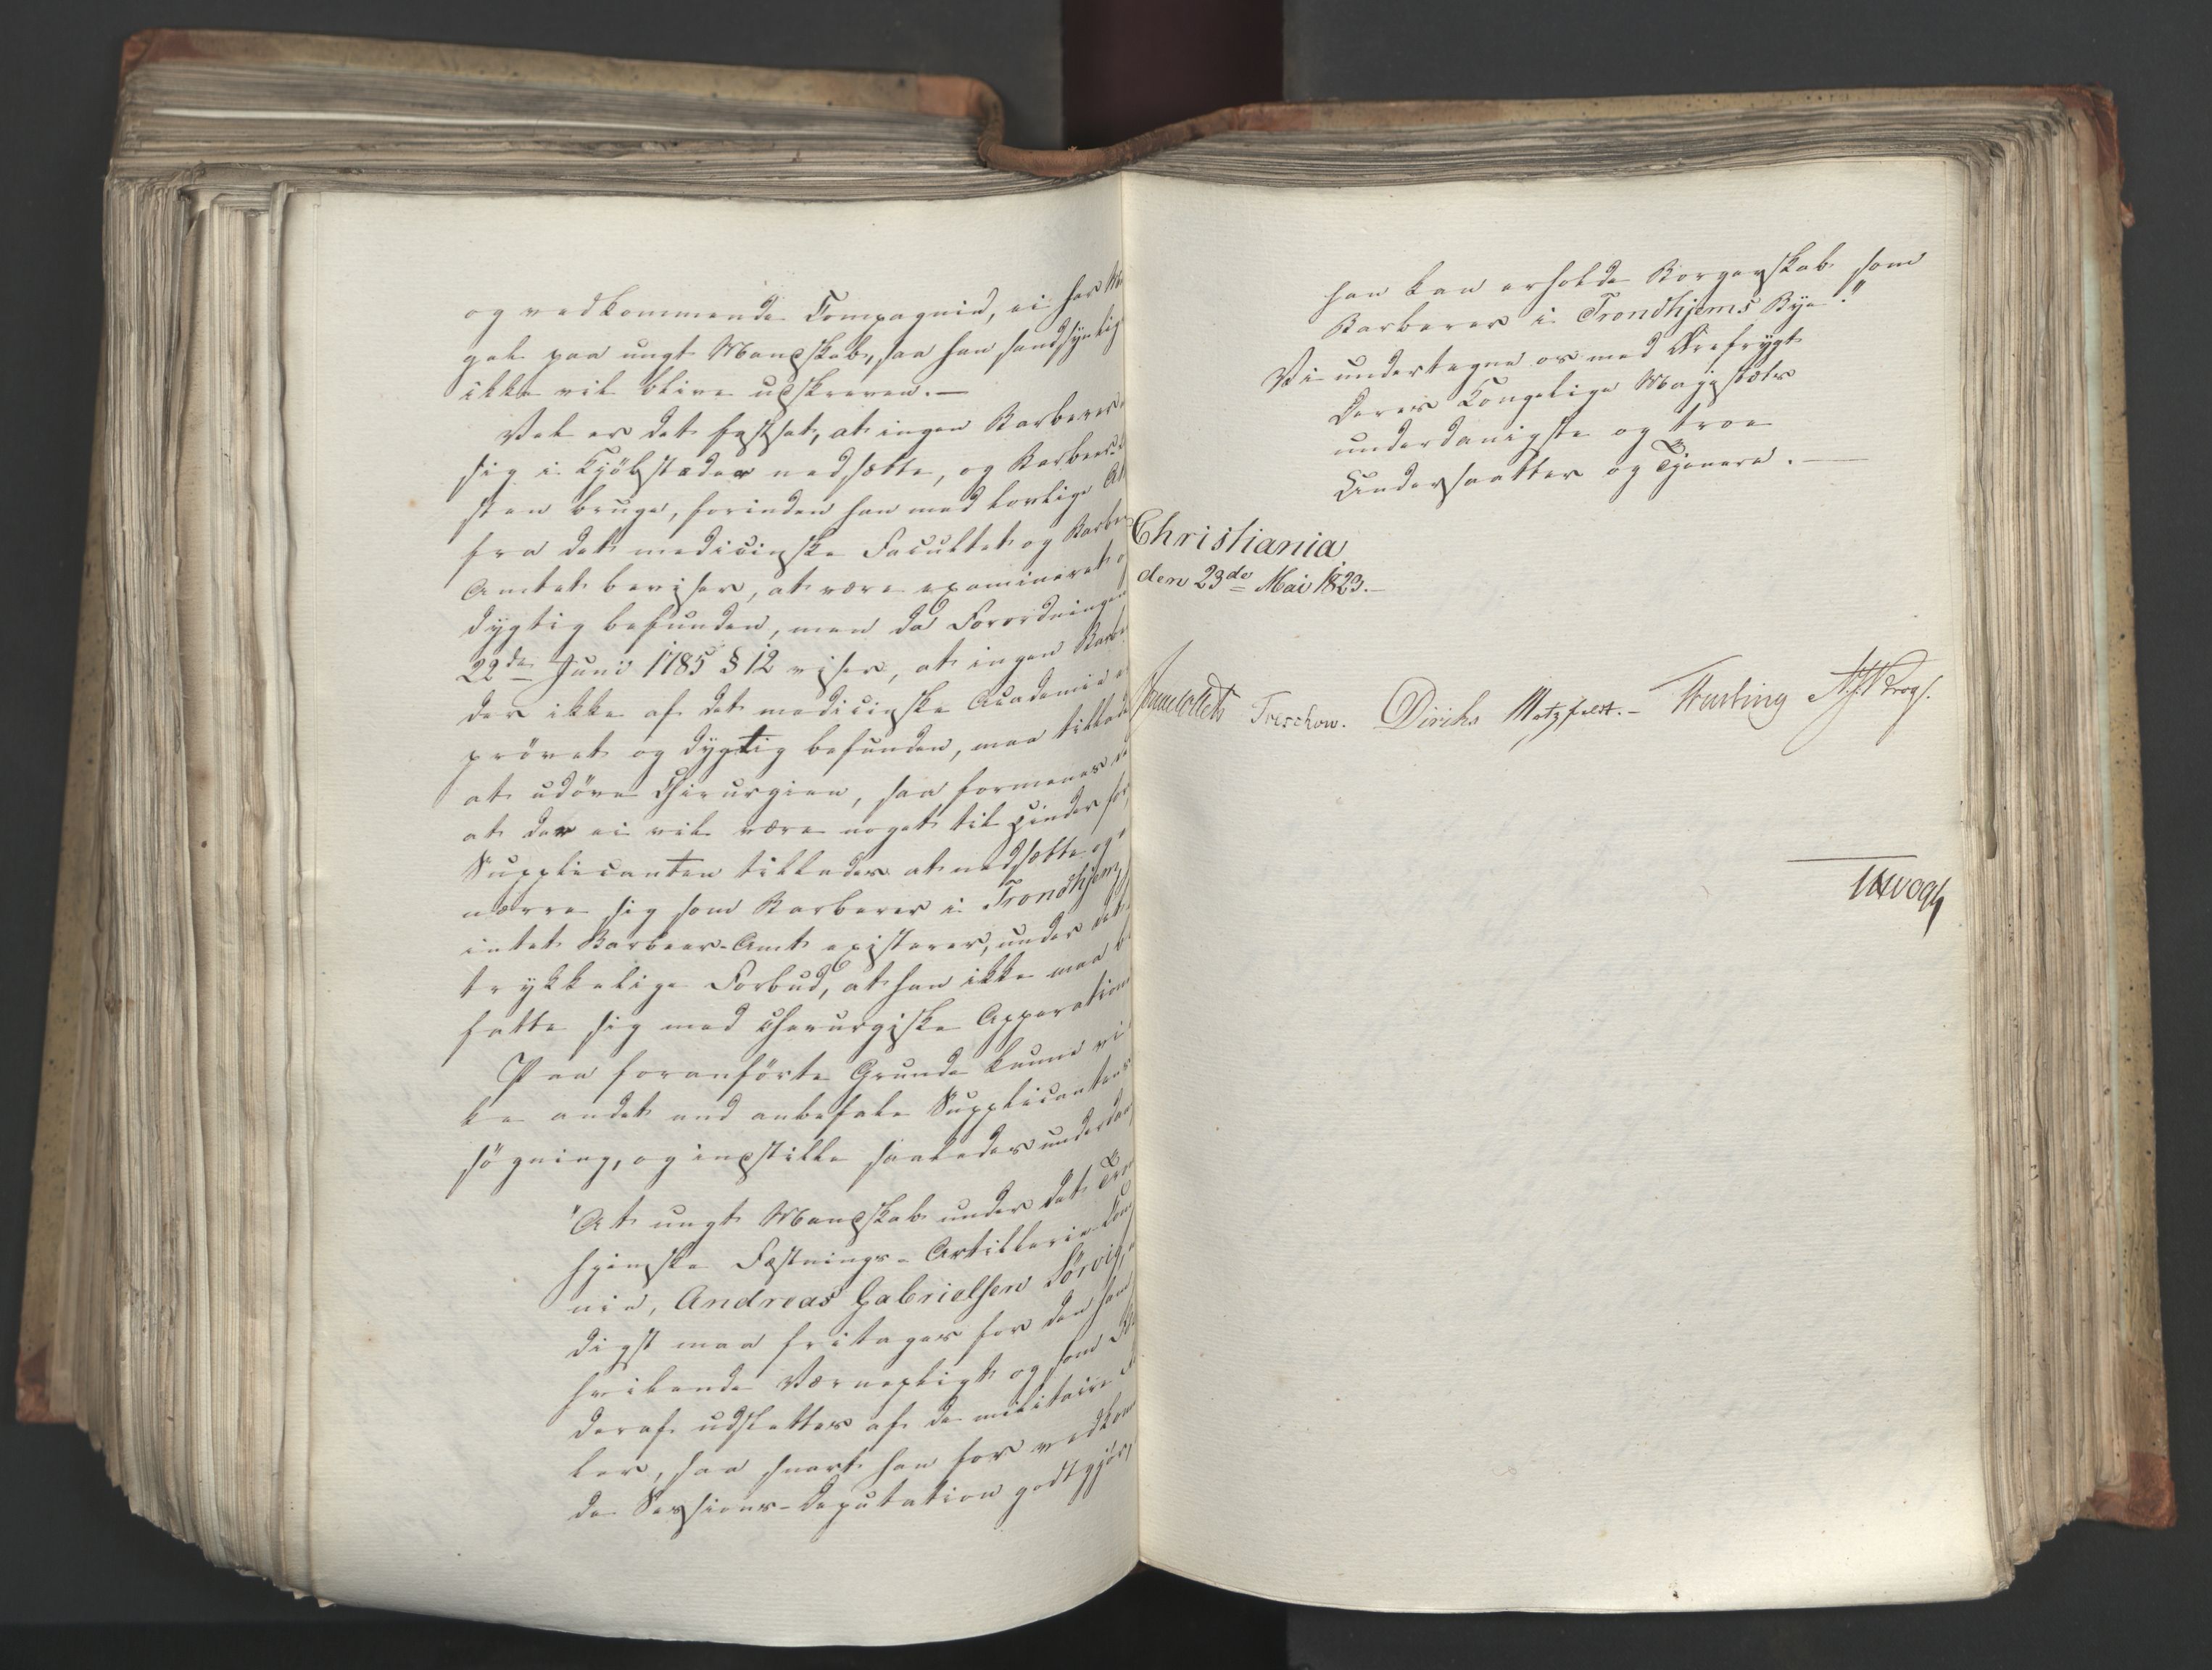 og vedkommende Compagnie, ei har M
gel paa ungt Mandskab, saa han sandsynlig
ikke vil blive udskreven. —
Vel er det fastsat, at ingen Barberer
sig i Kjöbstæder nedsætte, og Barbeer-
sten bruge, forinden han med lovlige At
fra det medicinske Facultet og Barbe
Amtet beviser, at være examineret o
dygtig befunden, men da Forordningen
22de Juni 1785 § 12 viser, at ingen Barbe
der ikke af det medicinske Academie er
prövet og dygtig befunden, maa tillade
at udöve Chirurgien, saa formenes
at der ei vil være noget til Hinder for
Supplicanten tillades at nedsætte og
nærre sig som Barberer i Trondhjem,
intet Barbeer-Amt existerer, under det
trykkelige Forbud, at han ikke maa be
fatte sig med chirurgiske Apparation
Paa foranförte Grunde kunne vi
ke andet end anbefale Supplicantens
sögning, og indstille saaledes underdan
"At ungt Mandskab under det Tron
hjemske Fæstnings-Artillerie-Com
nie, Andreas Gabrielsen Sörvig,
digst maa fritages for den ham
hvilende Værnepligt og som
deraf udslettes af de militaire
ler, saa snart han for vedkom
de Sessions-Deputation godtgjör,
han kan erholde Borgerskab som
Barberer i Trondhjems Bye."
Vi undertegne os med Ærefrygt
Deres Kongelige Majestæts
underdanigste og troe
Undersaatter og Tjenere. —
Christiania
den 23de Mai 1823. —
Jonas Collett Treschow. Diriks Motzfeldt. — Fasting